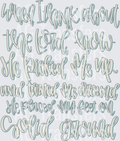 when I think about
the Lord, how
He picked Me up
and turned Me around
He placed my feet on
Solid ground